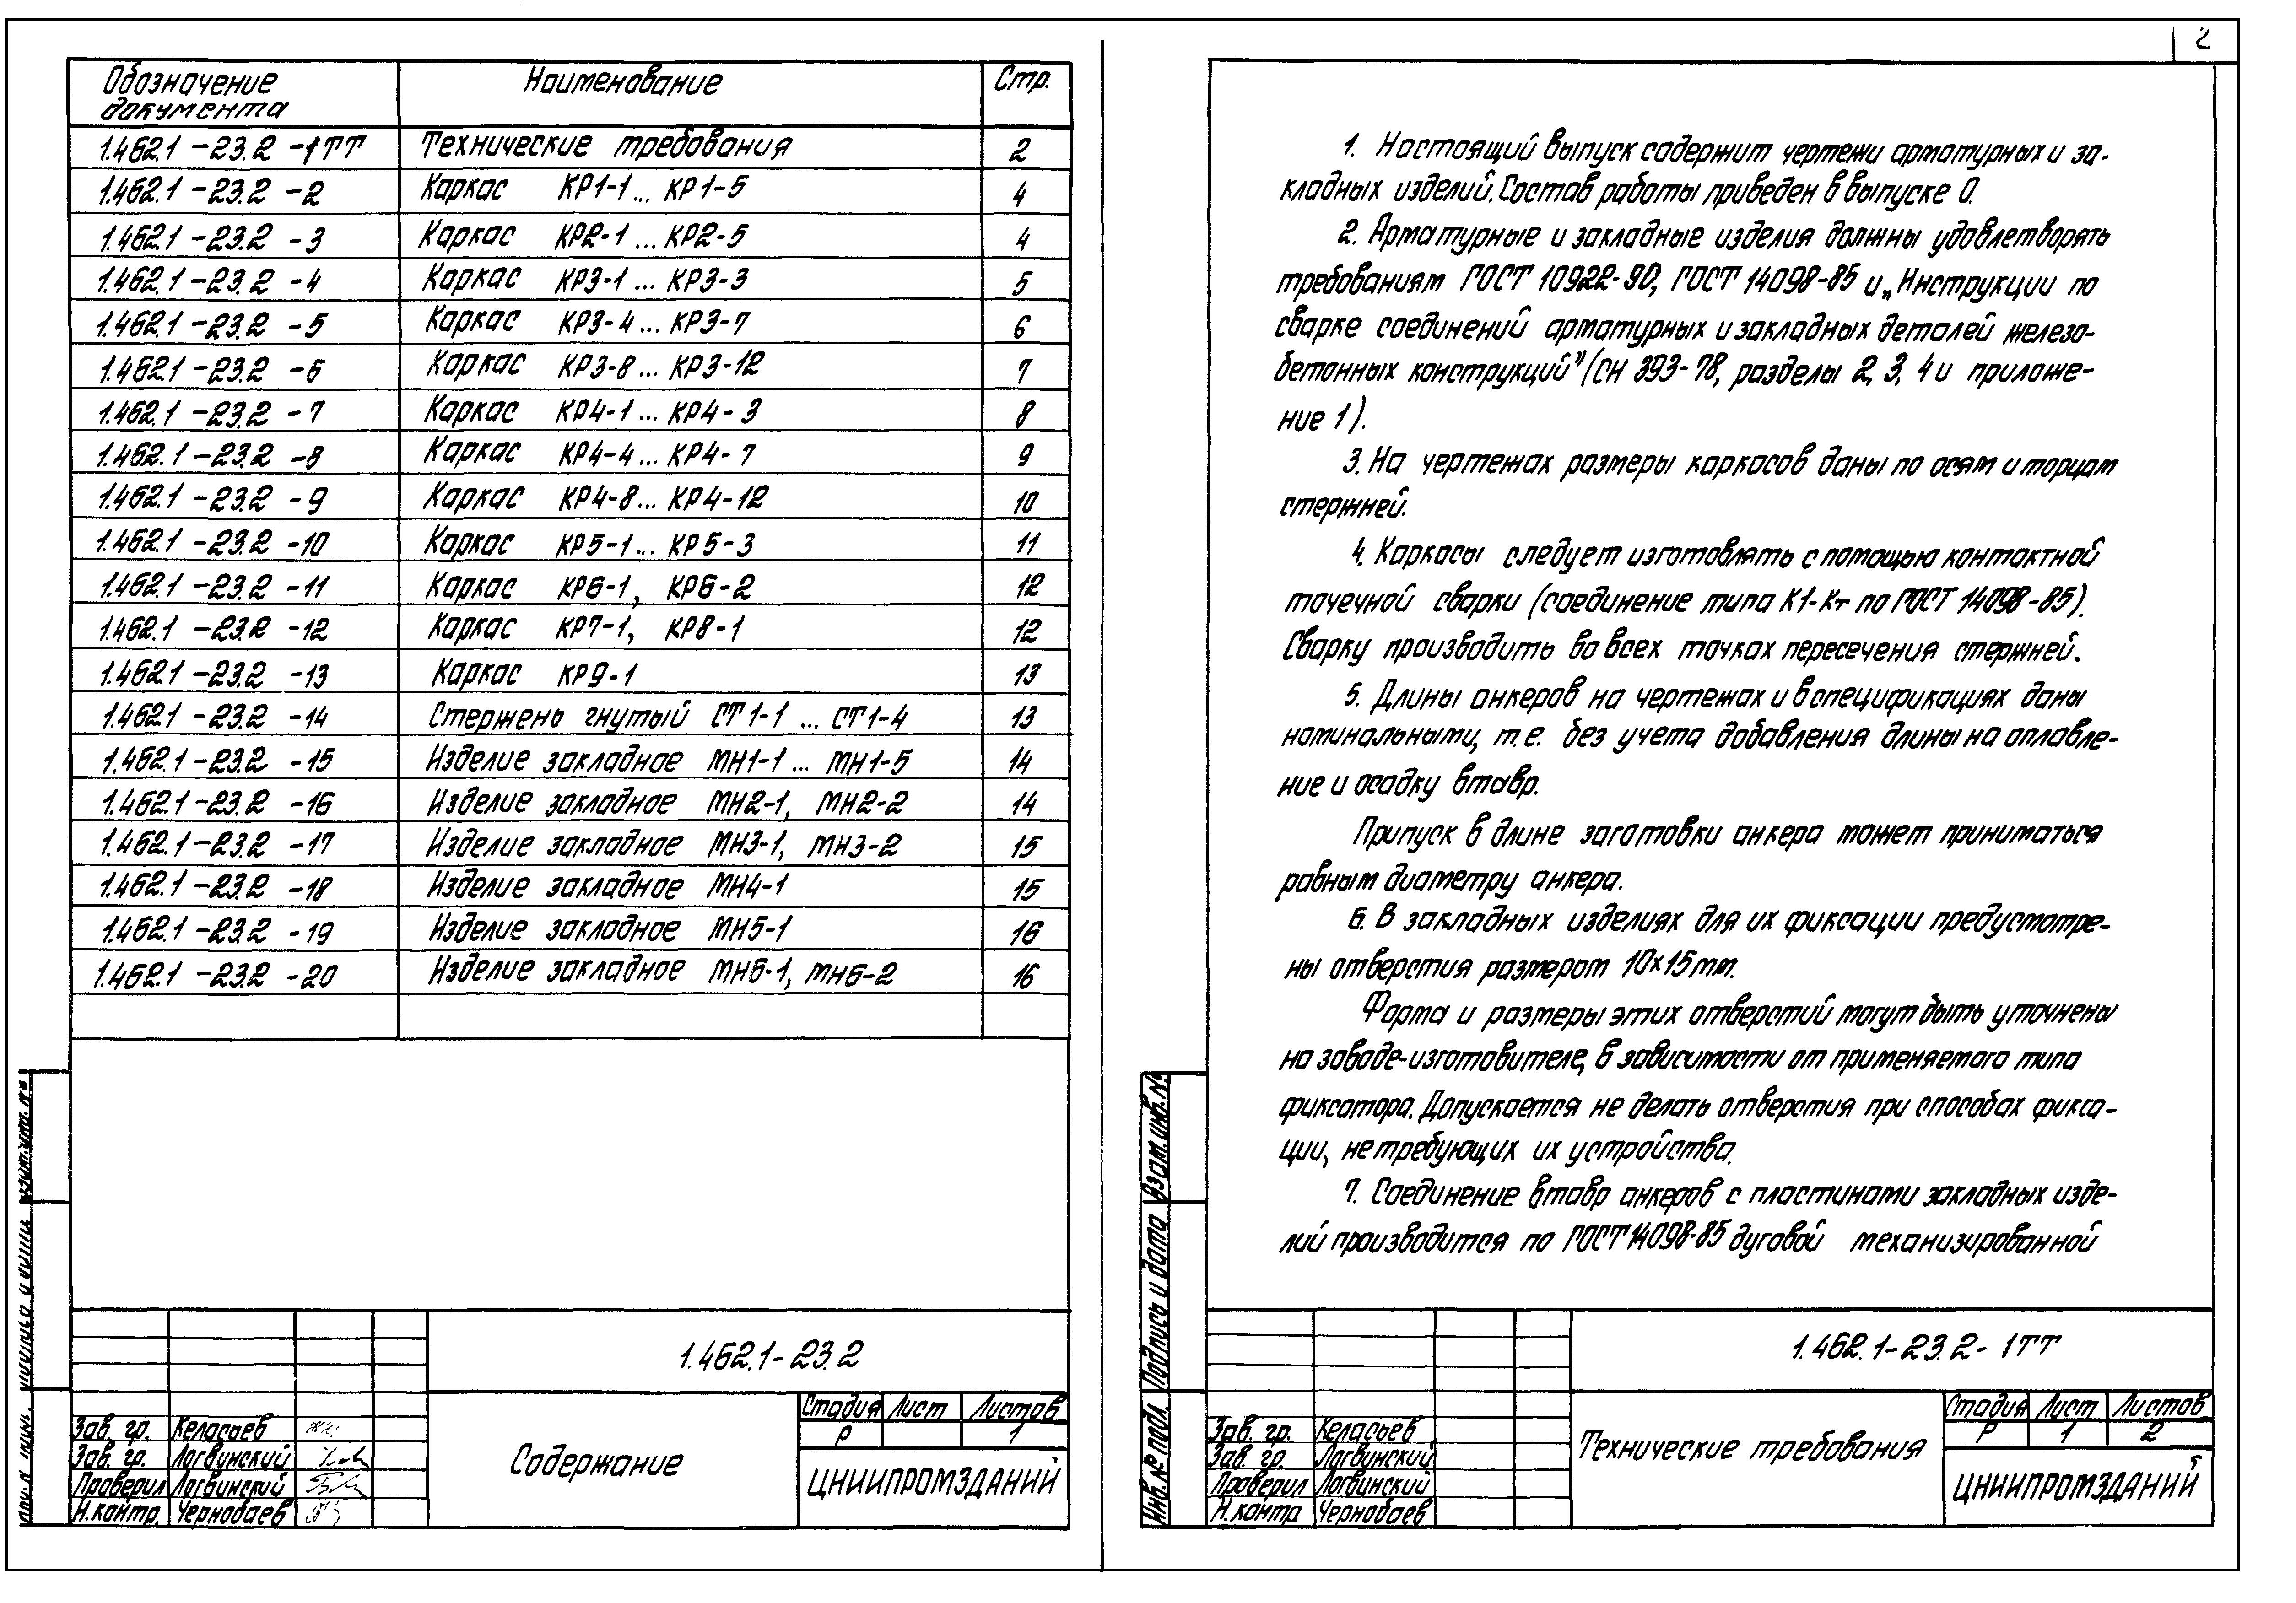 2
Обозначение документа Наименование Стр.
1.462.1-23.2-1ТТ Технические требования 2
1.462.1-23.2-2 Каркас КР1-1... КР1-5 4
1.462.1-23.2-3 Каркас КР2-1...КР2-5 4
1.462.1-23.2-4 Каркас КР3-1...КР3-3 5
1.462.1-23.2-5 Каркас КР3-4...КР3-7 6
1.462.1-23.2-6 Каркас КР3-8...КР3-12 7
1.462.1-23.2-7 Каркас КР4-1...КР4-3 8
1.462.1-23.2-8 Каркас КР4-4...КР4-7 9
1.462.1-23.2-9 Каркас КР4-8...КР4-12 10
1.462.1-23.2-10 Каркас КР5-1...КР5-3 11
1.462.1-23.2-11 Каркас КР6-1, КР6-2 12
1.462.1-23.2-12 Каркас КР7-1, КР8-1 12
1.462.1-23.2-13 Каркас КР9-1 13
1.462.1-23.2-14 Стержень гнутый СТ1-1 ... СТ1-4 13
1.462.1-23.2-15 Изделие закладное МН1-1... МН1-5 14
1.462.1-23.2-16 Изделие закладное МН2-1, МН2-2 14
1.462.1-23.2-17 Изделие закладное МН3-1, МН3-2 15
1.462.1-23.2-18 Изделие закладное МН4-1 15
1.462.1-23.2-19 Изделие закладное МН5-1 16
1.462.1-23.2-20 Изделие закладное МН6-1, МН6-2 16
1.462.1-23.2
Стадия Лист Листов
Р 1
Зав. гр. Келасьев
Зав. гр. Логвинский
Проверил Логвинский
Н.контр. Чернобаев
Содержание
ЦНИИПРОМЗДАНИЙ
1. Настоящий выпуск содержит чертежи арматурных и за-
кладных изделий. Состав работы приведен в выпуске 0.
2. Арматурные и закладные изделия должны удовлетворять
требованиям ГОСТ 10922-90, ГОСТ 14098-85 и „Инструкции по
сварке соединений арматурных и закладных деталей железо-
бетонных конструкций" (СН 393-78, разделы 2, 3, 4 и приложе-
ние 1).
3. На чертежах размеры каркасов даны по осям и торцам
стержней.
4. Каркасы следует изготовлять с помощью контактной
точечной сварки (соединение типа К1-Кт по ГОСТ 14098-85).
Сварку производить во всех точках пересечения стержней.
5. Длины анкеров на чертежах и в спецификациях даны
номинальными, т.е. без учета добавления длины на оплавле-
ние и осадку втавр.
Припуск в длине заготовки анкера может приниматься
равным диаметру анкера.
6. В закладных изделиях для их фиксации предусмотре-
ны отверстия размером 10×15мм.
Форма и размеры этих отверстий могут быть уточнены
на заводе-изготовителе, в зависимости от применяемого типа
фиксатора. Допускается не делать отверстия при способах фикса-
ции, не требующих их устройства.
7. Соединение втавр анкеров с пластинами закладных изде-
лий производится по ГОСТ 14098-85 дуговой механизированной
Взам.инв.№
Подпись и дата
Инв.№ подл.
1.462.1-23.2-1ТТ
Стадия Лист Листов
Р 1 2
Зав. гр. Келасьев
Зав. гр. Логвинский
Проверил Логвинский
Н.контр Чернобаев
Технические требования
ЦНИИПРОМЗДАНИЙ